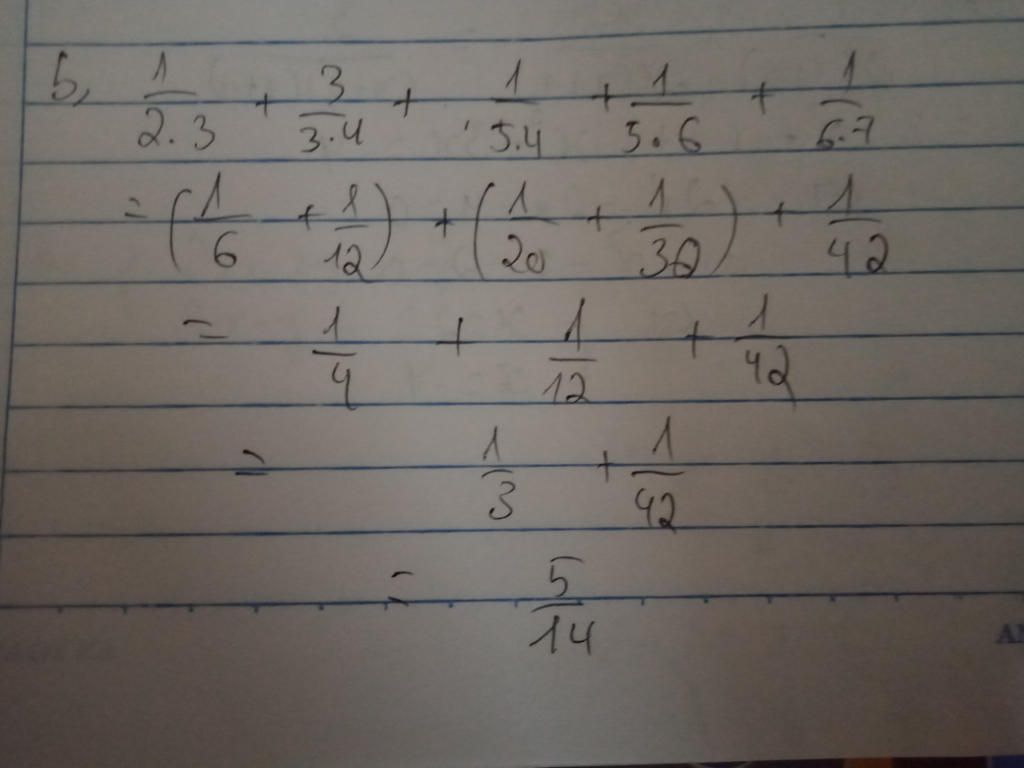 5, 1/2.3 + 3/3.4 + 1/5.4 + 1/5.6 + 1/6.7
= (1/6 + 1/12) + (1/20 + 1/30) + 1/42
= 1/4 + 1/12 + 1/42
= 1/3 + 1/42
= 5/14